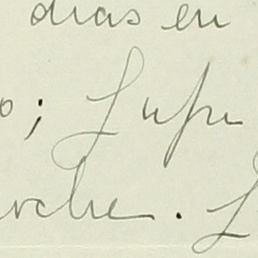 dias en
o; Lupe
oche. L